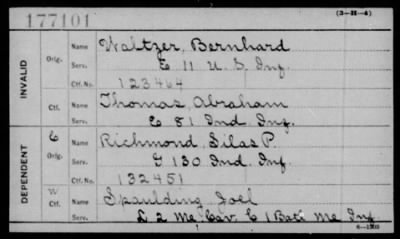 177101
(3-H-4)
INVALID
Orig.
Name Waltzer, Bernhard
Serv. E 11 U.S. Inf.
Ctf. No. 123464
Ctf.
Name Thomas, Abraham
Serv. E 81 Ind. Inf.
DEPENDENT
C
Orig.
Name Richmond, Silas P.
Serv. G 130 Ind. Inf.
Ctf. No. 132451
W
Ctf.
Name Spaulding, Joel
Serv. L 2 Me Cav. C 1 Batt Me Inf